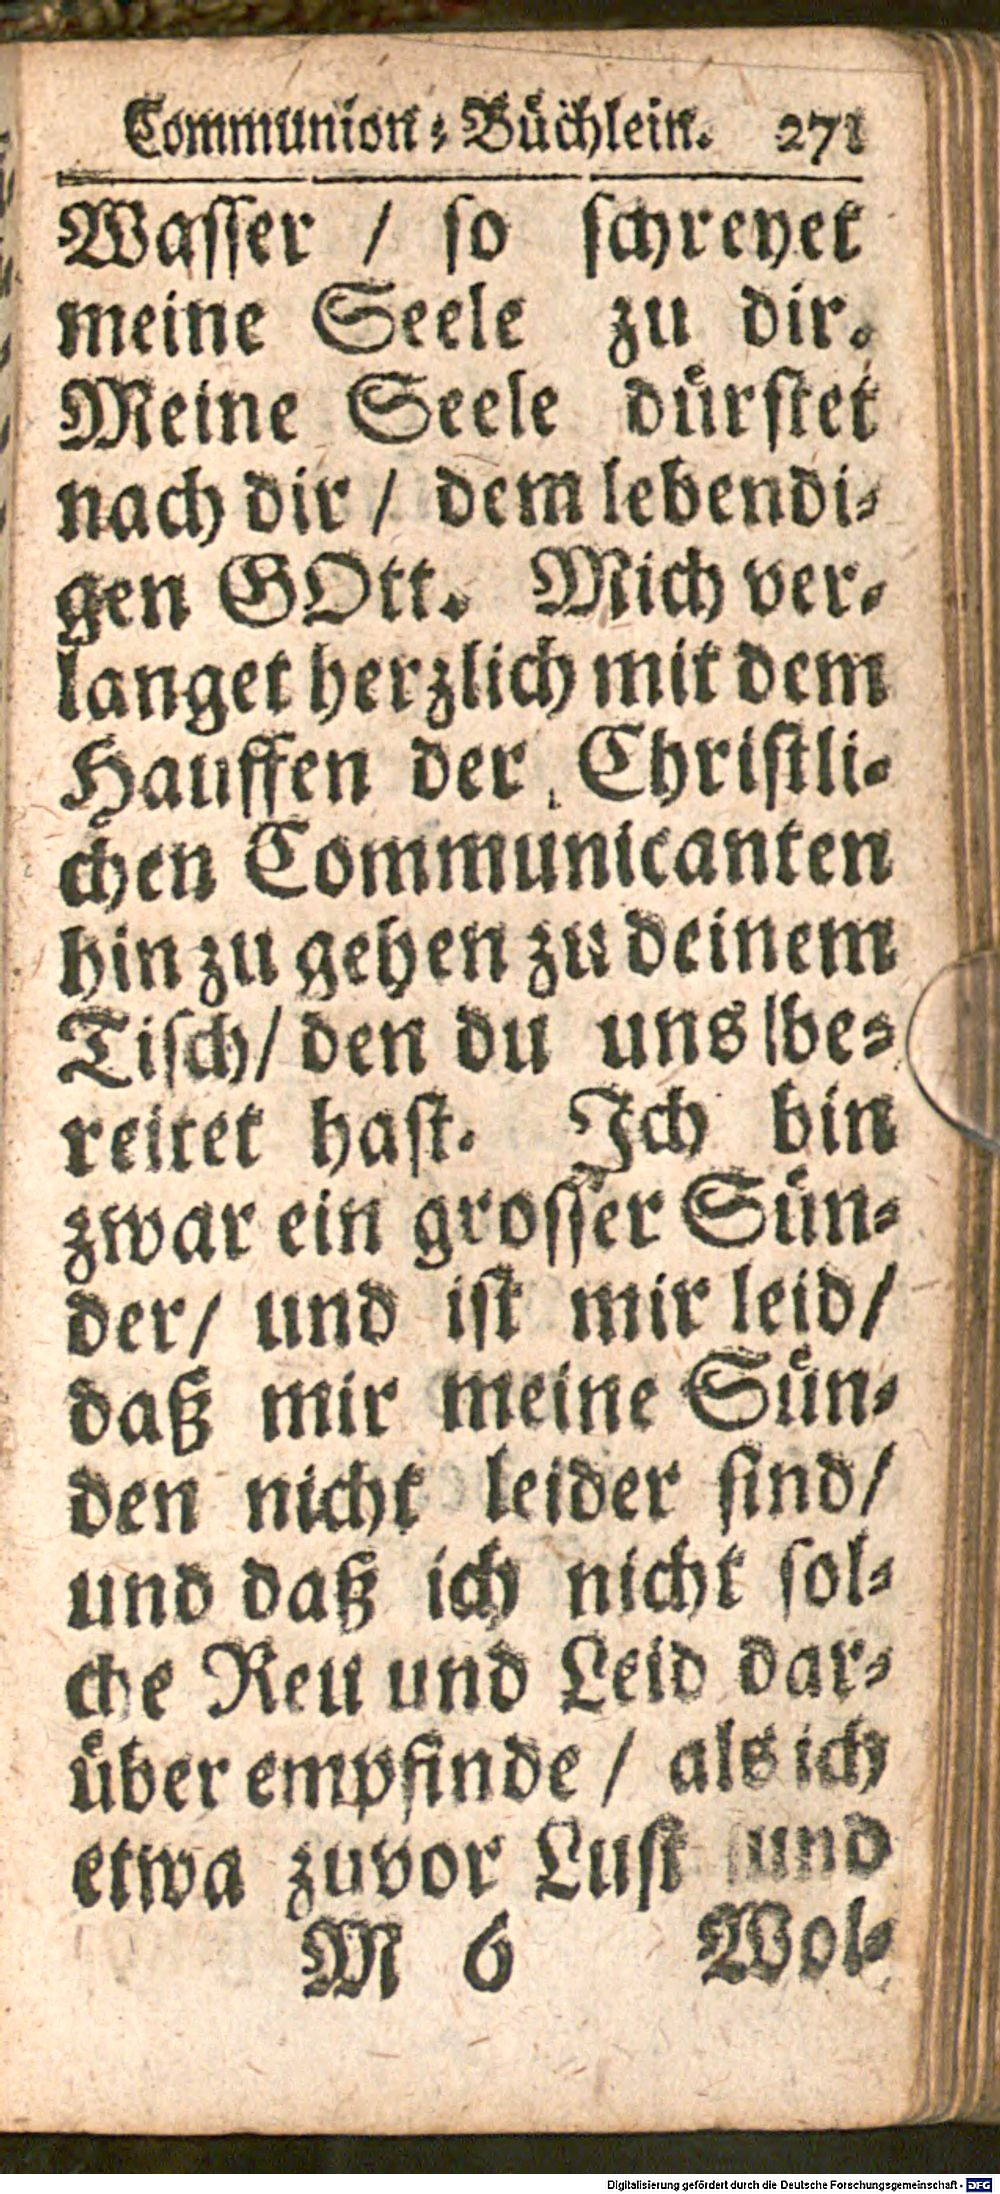 Communion-Büchlein. 271
Wasser / so schreyet
meine Seele zu dir.
Meine Seele dürstet
nach dir / dem lebendi-
gen GOtt. Mich ver-
langet herzlich mit dem
Hauffen der Christli-
chen Communicanten
hin zu gehen zu deinem
Tisch / den du uns be-
reitet hast. Ich bin
zwar ein grosser Sün-
der / und ist mir leid /
daß mir meine Sün-
den nicht leider sind /
und daß ich nicht sol-
che Reu und Leid dar-
über empfinde / als ich
etwa zuvor Lust und
M 6 Wol-
Digitalisierung gefördert durch die Deutsche Forschungsgemeinschaft - DFG